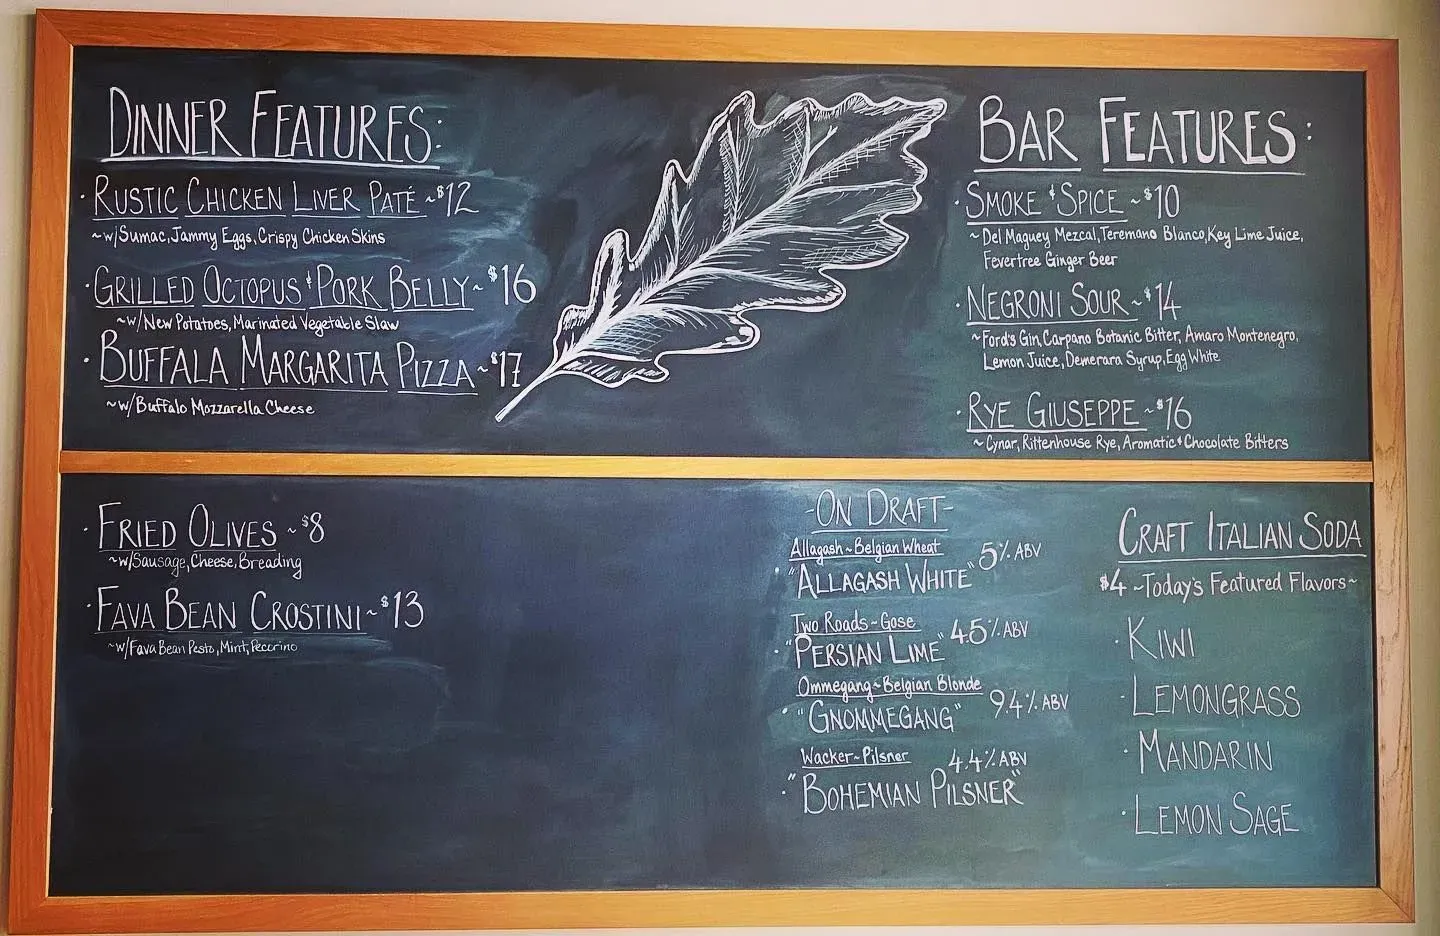 DINNER FEATURES:
· RUSTIC CHICKEN LIVER PATÉ ~ $12
~ w/Sumac, Jammy Eggs, Crispy Chicken Skins
· GRILLED OCTOPUS & PORK BELLY ~ $16
~ w/New Potatoes, Marinated Vegetable Slaw
· BUFFALA MARGARITA PIZZA ~ $17
~ w/Buffalo Mozzarella Cheese
BAR FEATURES:
· SMOKE & SPICE ~ $10
~ Del Maguey Mezcal, Teremano Blanco, Key Lime Juice,
Fevertree Ginger Beer
· NEGRONI SOUR ~ $14
~ Ford's Gin, Carpano Botanic Bitter, Amaro Montenegro,
Lemon Juice, Demerara Syrup, Egg White
· RYE GIUSEPPE ~ $16
~ Cynar, Rittenhouse Rye, Aromatic & Chocolate Bitters
· FRIED OLIVES ~ $8
~ w/Sausage, Cheese, Breading
· FAVA BEAN CROSTINI ~ $13
~ w/Fava Bean Pesto, Mint, Pecorino
-ON DRAFT-
Allagash ~ Belgian Wheat 5% ABV
· "ALLAGASH WHITE"
Two Roads ~ Gose 4.5% ABV
· "PERSIAN LIME"
Ommegang ~ Belgian Blonde 9.4% ABV
· "GNOMMEGANG"
Wacker ~ Pilsner 4.4% ABV
· "BOHEMIAN PILSNER"
CRAFT ITALIAN SODA
$4 ~ Today's Featured Flavors ~
· KIWI
· LEMONGRASS
· MANDARIN
· LEMON SAGE